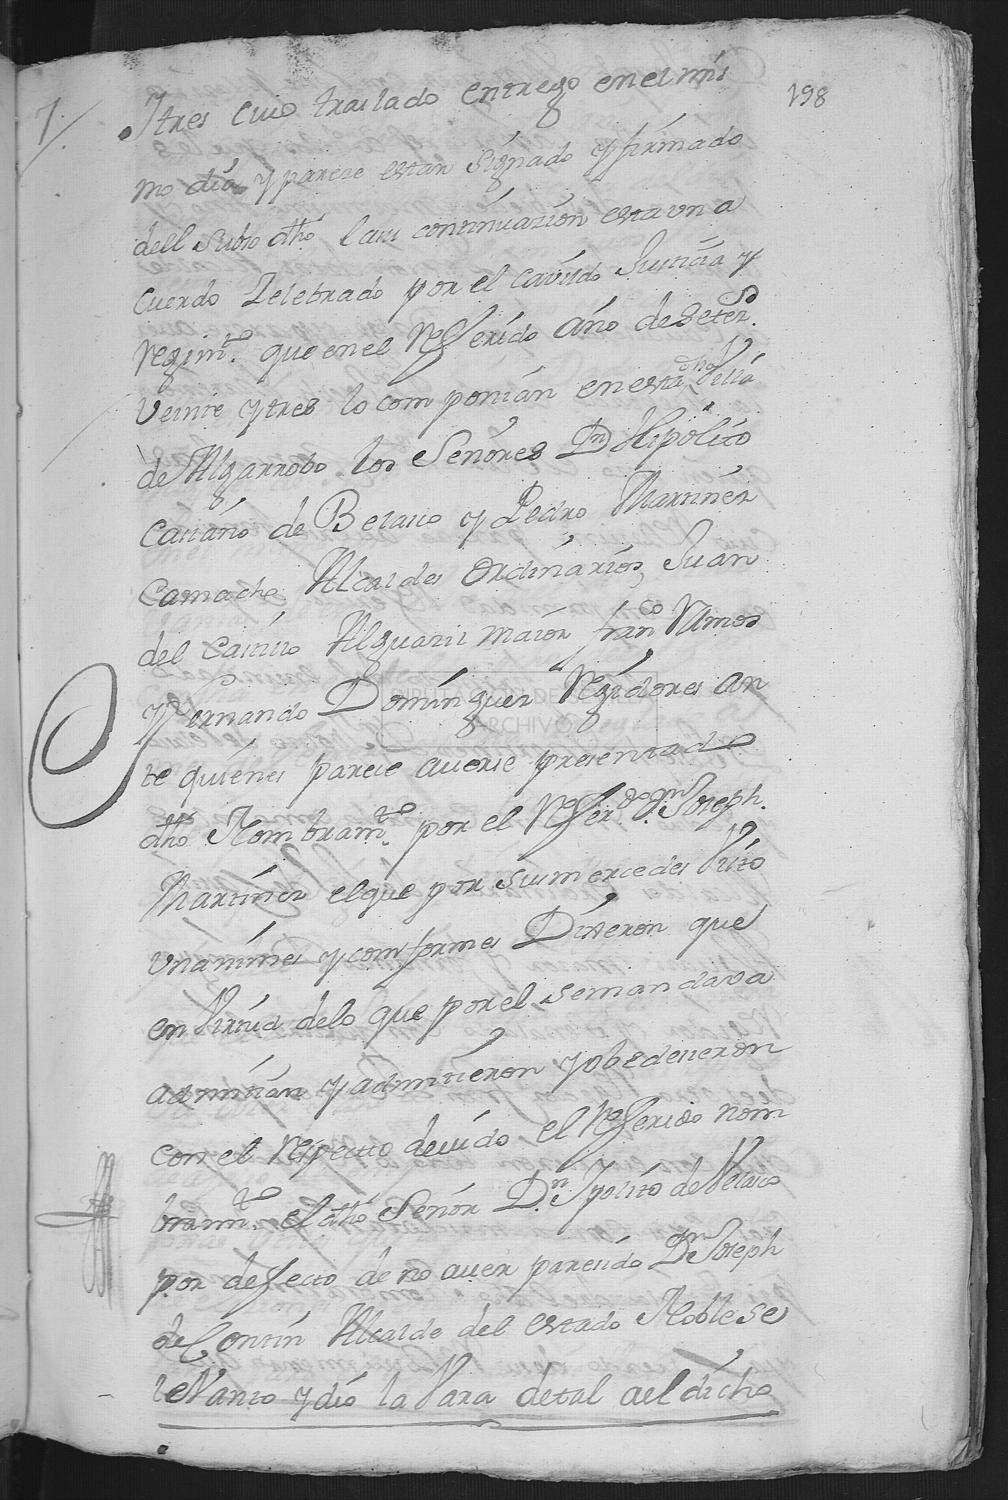 7/.
198
Ytres cuio traslado entrego en el mis
mo dia y parece estar signado y firmado
dell Susso dho. a cuia continuazion esta un a
cuerdo Zelebrado por el cavildo Justicia y
Regimto. que en el Refferido año de Setezs.
veinte y tres lo componian en esta dha Villa
de Algarrobo los Señores Dn Hipolito
Cassano de Belasco y Pedro Martinez
Camacho Alcaldes Ordinarios, Juan
del Castillo Alguazil maior franco Ramos
y Fernando Dominguez Regidores an
te quienes parece averse presentado
dho Nombramto. por el Refferdo. Dn Joseph.
Martinez el que por sus mercedes visto
Unanimes y comformes Dixeron que
en Virtud de lo que por el se mandava
admitian y admitieron y obedecieron
con el respecto devido el Refferido nom
bramto. el dho Señor Dn. Ypolito de Velasco
por deffecto de no aver parecido Dn Joseph
de Contin Alcalde del estado Noble se
leVanto y dio la Vara de tal a el dicho
DIPUTACION DE
ARCHIVO